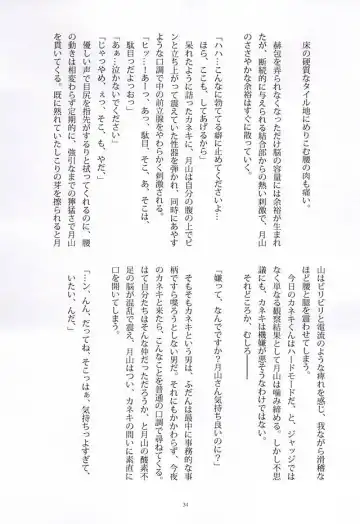 床の硬質なタイル地にめりこむ腰の肉も痛い。
赫包を弄られなくなっただけ脳の容量には余裕が生まれたが、断続的に与えられる結合部からの熱い刺激で、月山のささやかな余裕はすぐに散っていく。
「ハハ…こんなに勃ててる癖に止めてくださいよ…ほら、ここも、してあげるから」
呆れたように詰ったカネキに、月山は自分の腹の上でピンと立ち上がって震えていた性器を弾かれ、同時にあやすような口調で中の前立腺をやわらかく刺激される。
「ヒッ…！あーっ、あっ、駄目、そこ、あ、そこは、駄目っだよっおっ」
「あぁ…泣かないでください」
「じゃっつやめ、ぇっ、そこ、も、やだ。」
優しい声で目尻を指先がするりと拭ってくれるのに、腰の動きは相変わらず定期的に、強引なまでの獰猛さで月山を貫いてくる。既に熟れていたしこりの芽を擦られると月
山はビリビリと電流のような痺れを感じ、我ながら滑稽なほど腰と腿を震わせてしまう。
今日のカネキくんはハードモードだ、と、ジャッジではなく単なる観察結果として月山は噛み締める。しかし不思議にも、カネキは機嫌が悪そうなわけではない。
それどころか、むしろ――
「嫌って、なんでですか？月山さん気持ち良いのに？」
そもそもカネキという男は、ふだんは最低限の事務的な事柄ですら喋ろうとしない男だ。それにもかかわらず、今夜はカネキと来たら、こんなことを普通の口調で尋ねてくる。はて自分たちはそんな仲だっただろうか、と月山の酸素不足の脳が混乱で震え、月山はつい、カネキの問いに素直に口を開いてしまう。
「…ン、んん、だってね、そこっはぁ、気持ちっよすぎて、いたい、んだ、」
34